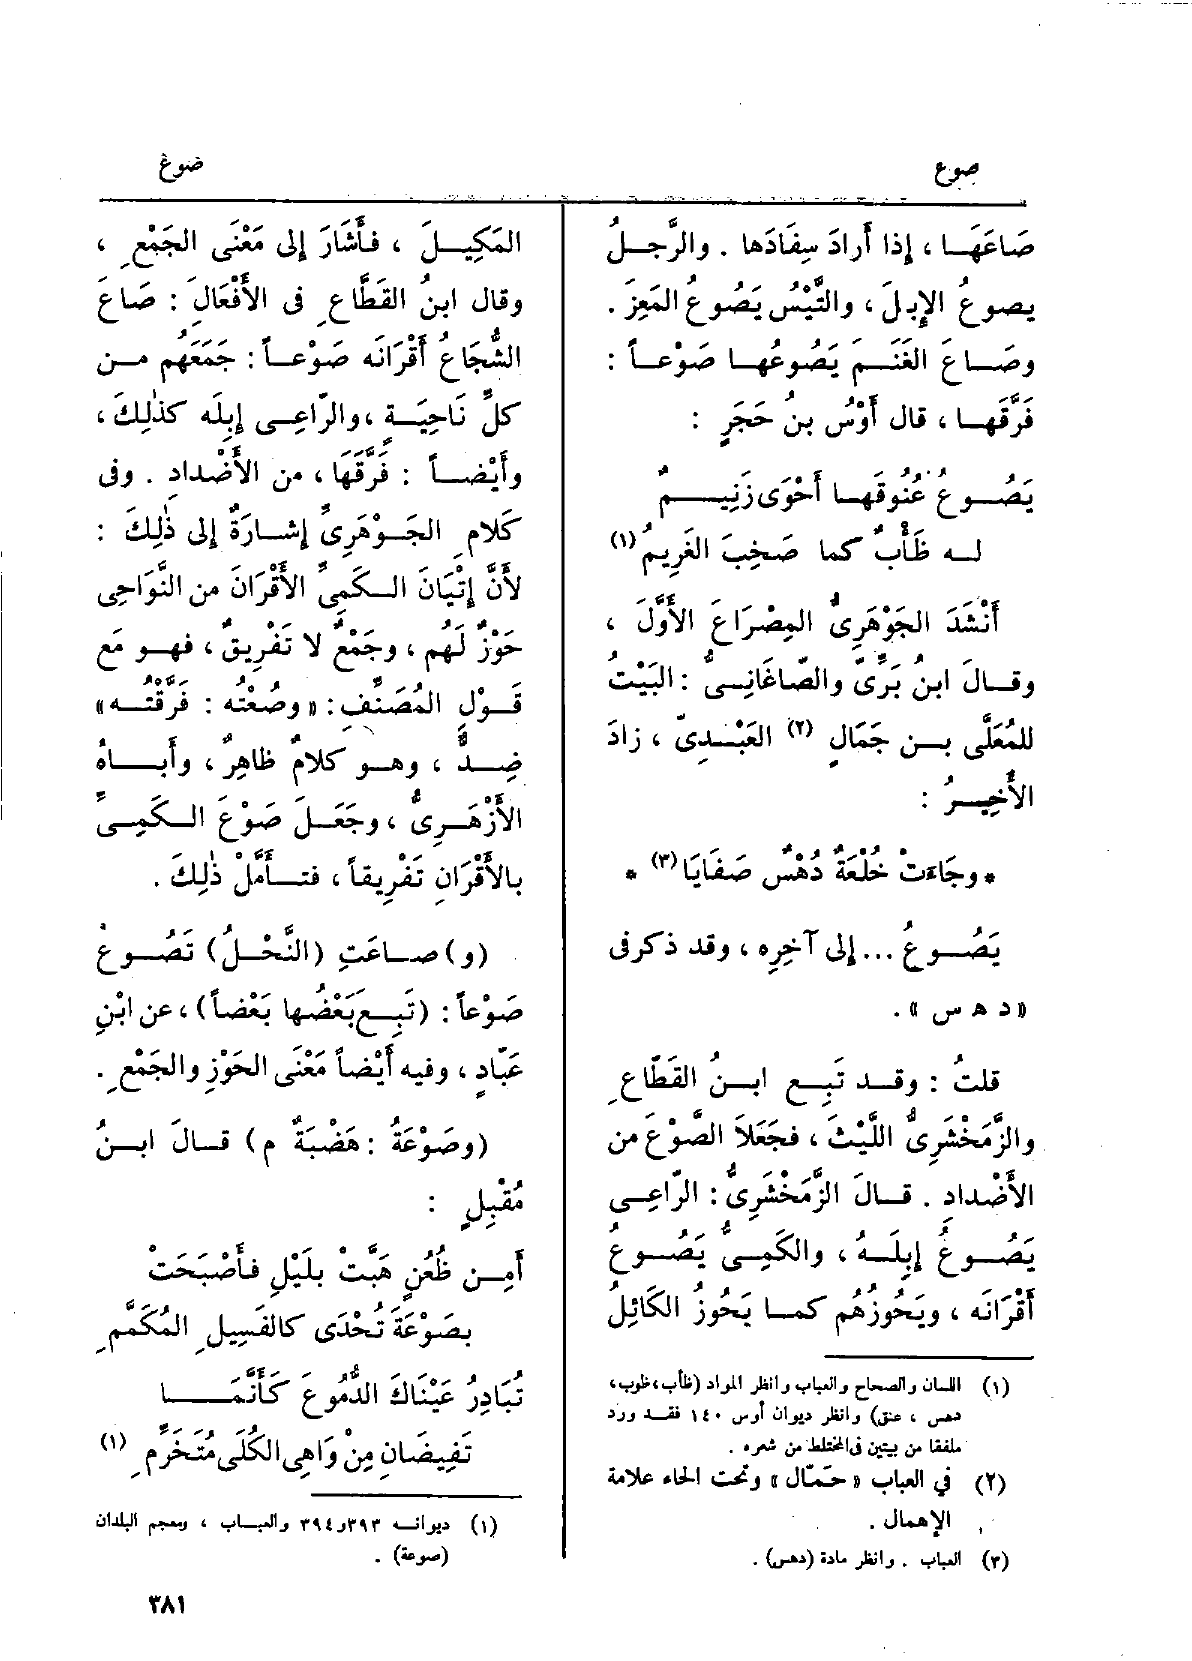 صوع
صوع
صَاعَهَا ، إِذا أَرادَ سِفَادَها . والرَّجلُ
يصوعُ الإِبلَ ، والتَّيْسُ يَصُوعُ المَعِزَ .
وصَاعَ الغَنَمَ يَصُوعُها صَوْعاً :
فَرَّقَها ، قال أَوْسُ بنُ حَجَرٍ :
يَصُوعُ عُنُوقَها أَحْوَى زَنِيمٌ
له ظَأْبٌ كما صَخِبَ الغَرِيمُ (١)
أَنْشَدَ الجَوْهَرِىُّ المِصْرَاعَ الأَوَّلَ ،
وقالَ ابنُ بَرِّىّ والصّاغَانِىُّ : البَيْتُ
للمُعَلَّى بن جَمَالٍ (٢) العَبْدِىّ ، زادَ
الأَخِيرُ :
* وجَاءَتْ خُلْعَةٌ دُهْسٌ صَفَايَا (٣) *
يَصُوعُ ... إلى آخِرِه ، وقد ذكر فى
« د ه س » .
قلتُ : وقد تَبِع ابنُ القَطَّاعِ
والزَّمَخْشَرِىُّ اللَّيْثَ ، فجَعَلاَ الصَّوْعَ من
الأَضْدادِ . قالَ الزَّمَخْشَرِىُّ : الرّاعِى
يَصُوعُ إِبِلَهُ ، والكَمِىُّ يَصُوعُ
أَقْرَانَه ، ويَحُوزُهُم كما يَحُوزُ الكَائِلُ
(١) اللسان والصحاح والعباب وانظر المواد (ظأب، ظوب،
دهس ، عنق) وانظر ديوان أوس ١٤٠ فقد ورد
ملفقا من بيتين فى المختلط من شعره .
(٢) في العباب « حَمّال » وتحت الحاء علامة
الإهمال .
(٣) العباب . وانظر مادة (دهس) .
المَكِيلَ ، فأَشَارَ إلى مَعْنَى الجَمْعِ ،
وقال ابنُ القَطَّاعِ فى الأَفْعَالِ : صَاعَ
الشُّجَاعُ أَقْرَانَه صَوْعاً : جَمَعَهُم من
كلِّ نَاحِيَةٍ ، والرّاعِى إِبِلَه كذٰلِكَ ،
وأَيْضاً : فَرَّقَهَا ، من الأَضْدادِ . وفى
كَلامِ الجَوْهَرِىِّ إِشارَةٌ إلى ذٰلِكَ :
لأَنَّ إِتْيَانَ الكَمِىِّ الأَقْرَانَ من النَّوَاحِى
حَوْزٌ لَهُم ، وجَمْعٌ لا تَفْرِيقٌ ، فهو مَع
قَوْلِ المُصَنِّفِ : « وصُعْتُه : فَرَّقْتُه »
ضِدٌّ ، وهو كلامٌ ظاهِرٌ ، وأَباهُ
الأَزْهَرِىُّ ، وجَعَلَ صَوْعَ الكَمِىِّ
بالأَقْرَانِ تَفْرِيقاً ، فتأَمَّلْ ذٰلِكَ .
(و) صاعَتِ (النَّحْلُ) تَصُوعُ
صَوْعاً : (تَبِع بَعْضُها بَعْضاً) ، عن ابْنِ
عَبّادٍ ، وفيه أَيْضاً مَعْنَى الحَوْزِ والجَمْعِ .
(وصَوْعَةُ : هَضْبَةٌ م) قالَ ابنُ
مُقْبِلٍ :
أَمِن ظُعُنٍ هَبَّتْ بلَيْلٍ فأَصْبَحَتْ
بصَوْعَةَ تُحْدَى كالفَسِيلِ المُكَمَّمِ
تُبَادِرُ عَيْنَاكَ الدُّمُوعَ كَأَنَّمَا
تَفِيضَانِ مِنْ وَاهِى الكُلَى مُتَخَرِّمِ (١)
(١) ديوانه ٣٩٣و٣٩٤ والعباب ، ومعجم البلدان
(صوعة) .
٣٨١